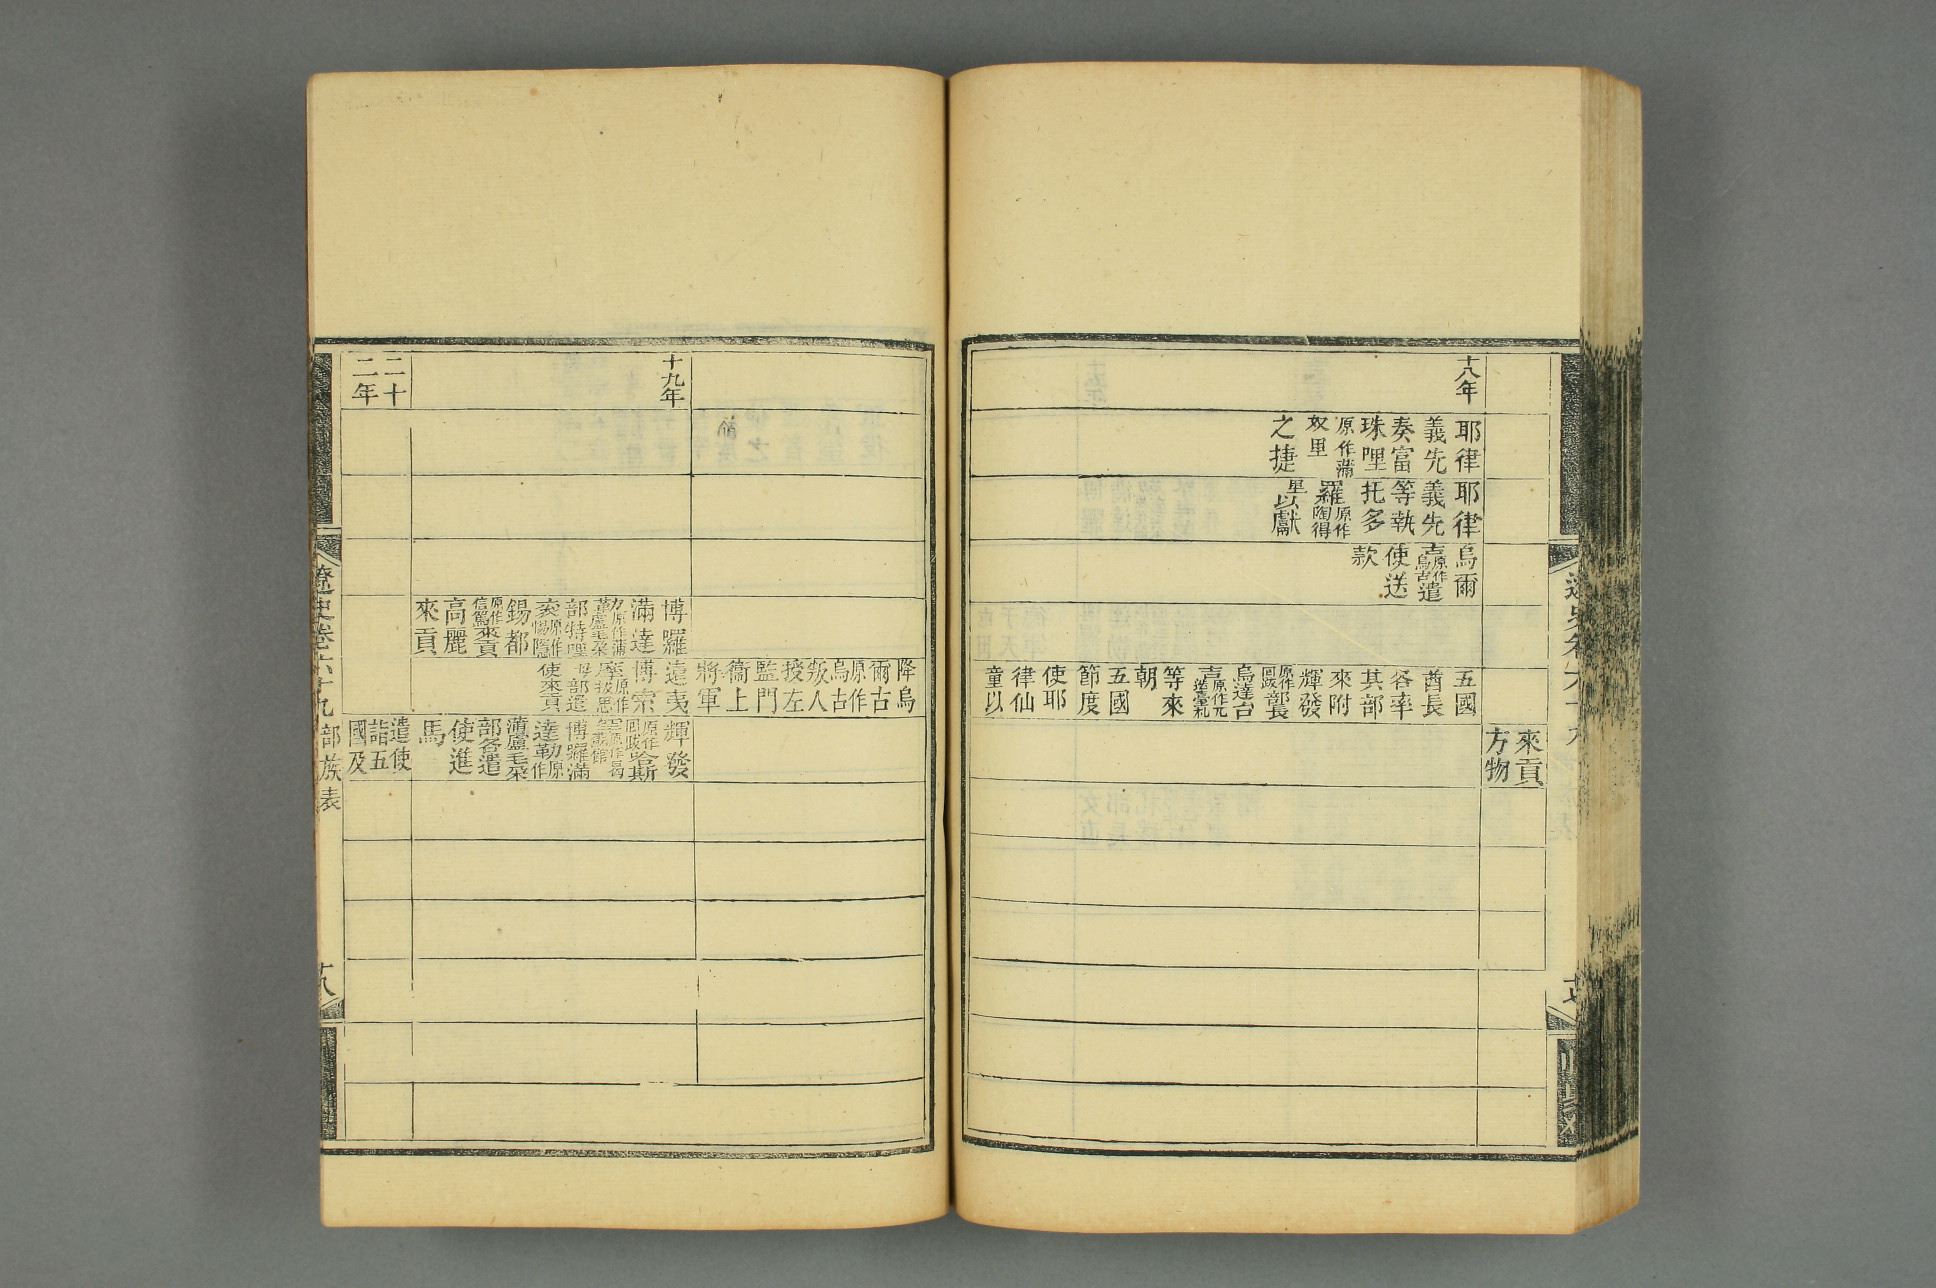 來貢
方物
十八年
耶律
義先
奏富
珠哩
原作蒲
奴里
之捷
耶律
義先
等執
托多
羅原作
陶得
里以獻
烏爾
古原作
烏古遣
使送
款
五國
酋長
各率
其部
來附
輝發
原作
回跋部長
烏達台
等來
朝
五國
節度
使耶
律仙
童以
降烏
爾古
原作
烏古
叛人
授左
監門
衞上
將軍
十九年
博囉
滿達
勒原作蒲
盧毛朶
部特哩
衮原作
惕隱
錫都
原作
信篤來貢
高麗
來貢
遠夷
博索
摩原作
婆思
母部遣
使來貢
輝發
原作
回跋哈斯
博囉滿
達勒原作
蒲盧毛朶
部各遣
使進
馬
二十
二年
遣使
詣五
國及
遼史卷六十九部族表
十八